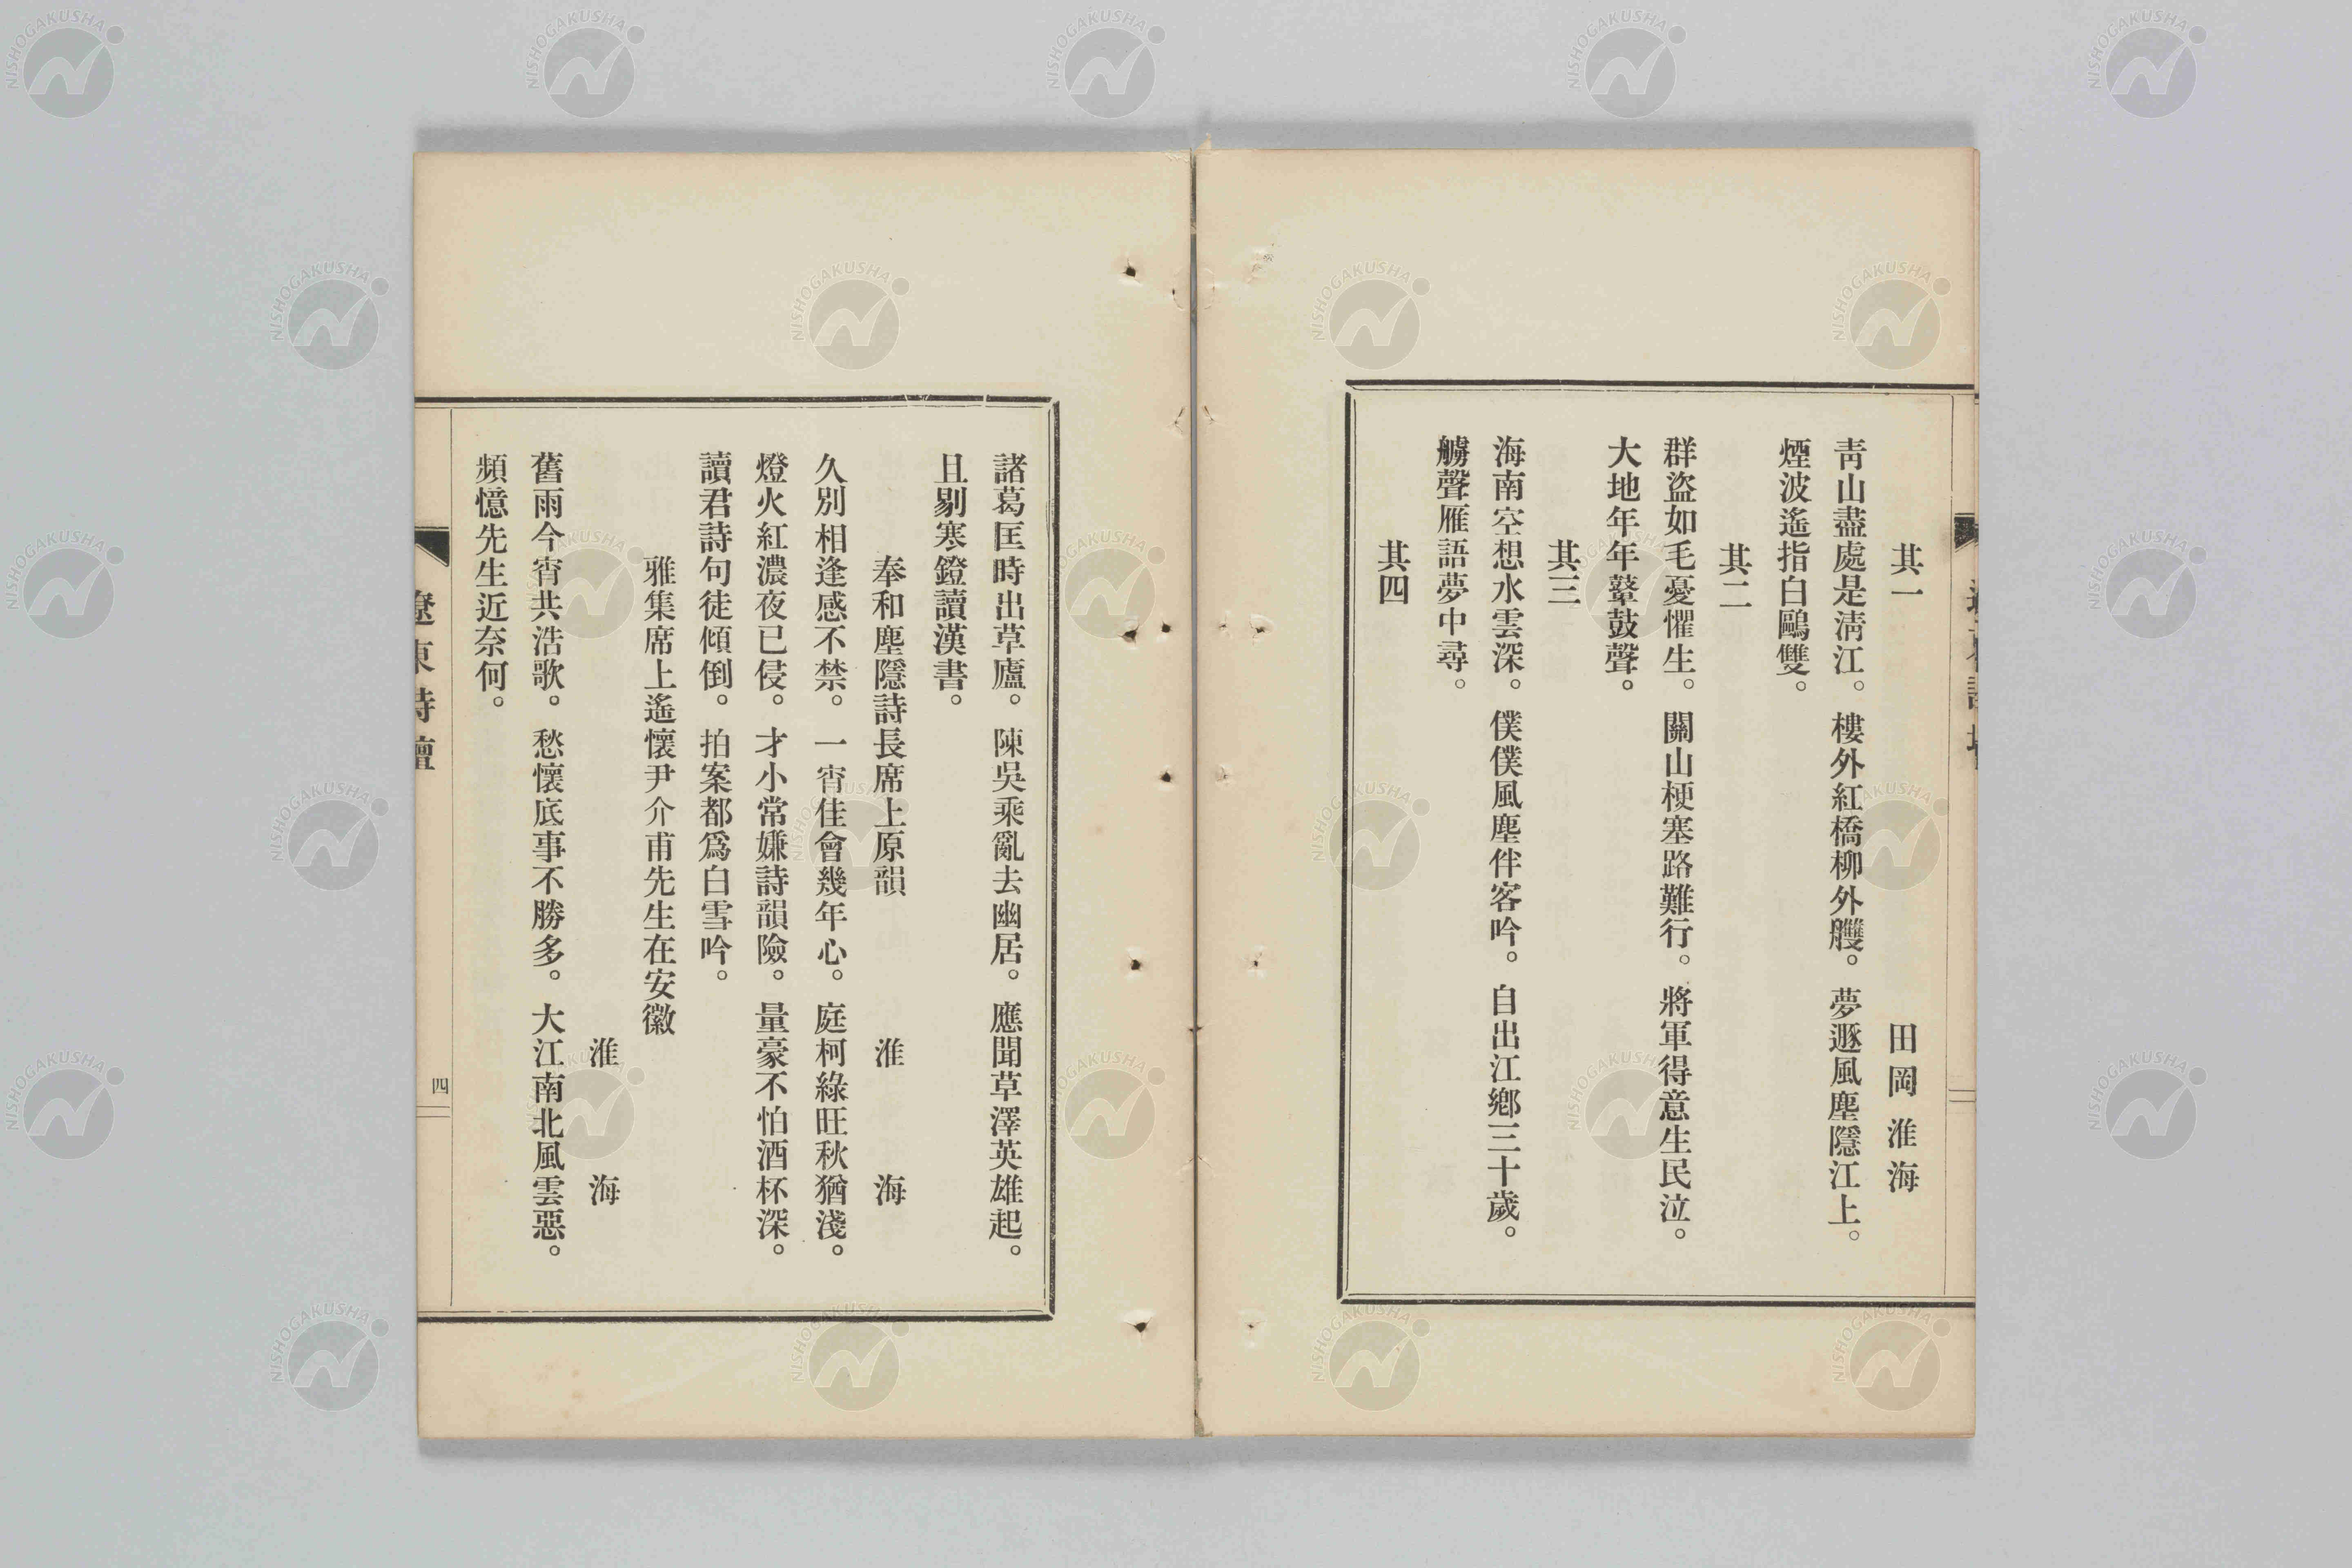 其一
田岡淮海
靑山盡處是淸江。樓外紅橋柳外艭。夢遯風塵隱江上。
煙波遙指白鷗雙。
其二
群盜如毛憂懼生。關山梗塞路難行。將軍得意生民泣。
大地年年鼙鼓聲。
其三
海南空想水雲深。僕僕風塵伴客吟。自出江鄕三十歲。
艣聲雁語夢中尋。
其四
諸葛匡時出草廬。陳吳乘亂去幽居。應聞草澤英雄起。
且剔寒鐙讀漢書。
奉和塵隱詩長席上原韻
淮海
久別相逢感不禁。一宵佳會幾年心。庭柯綠旺秋猶淺。
燈火紅濃夜已侵。才小常嫌詩韻險。量豪不怕酒杯深。
讀君詩句徒傾倒。拍案都爲白雪吟。
雅集席上遙懷尹介甫先生在安徽
淮海
舊雨今宵共浩歌。愁懷底事不勝多。大江南北風雲惡。
頻憶先生近奈何。
遼東詩壇
四
NISHOGAKUSHA